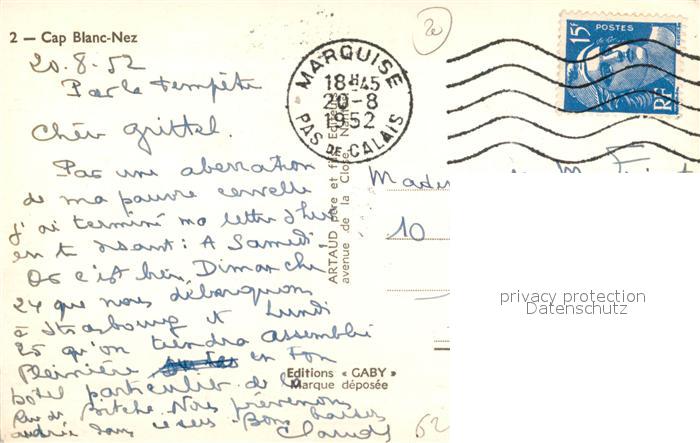 2 — Cap Blanc-Nez
20.8.52
Par la tempête
Chère Grittel.
Par une aberration
de ma pauvre cervelle
j'ai terminé ma lettre d'hier
en te disant: A Samedi.
Or c'est bien Dimanche
24 que nous débarquons
à Strasbourg et Lundi
25 qu'on tiendra assemblée
Pleinière en ton
hôtel particulier de la
Rue de Bitche. Nous prévenons
andrée dans ce sens. Bons baisers
Claude
MARQUISE
18H45
20-8
1952
PAS DE CALAIS
ARTAUD père et fils Editeurs
avenue de la Close, Nantes
Editions « GABY »
Marque déposée
15F
POSTES
RF
Madem
10
privacy protection
Datenschutz
62